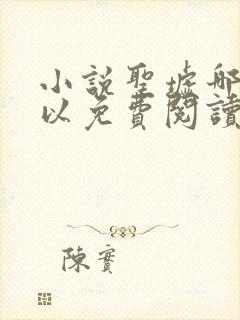 小說聖墟哪
以免費閱讀
陳實